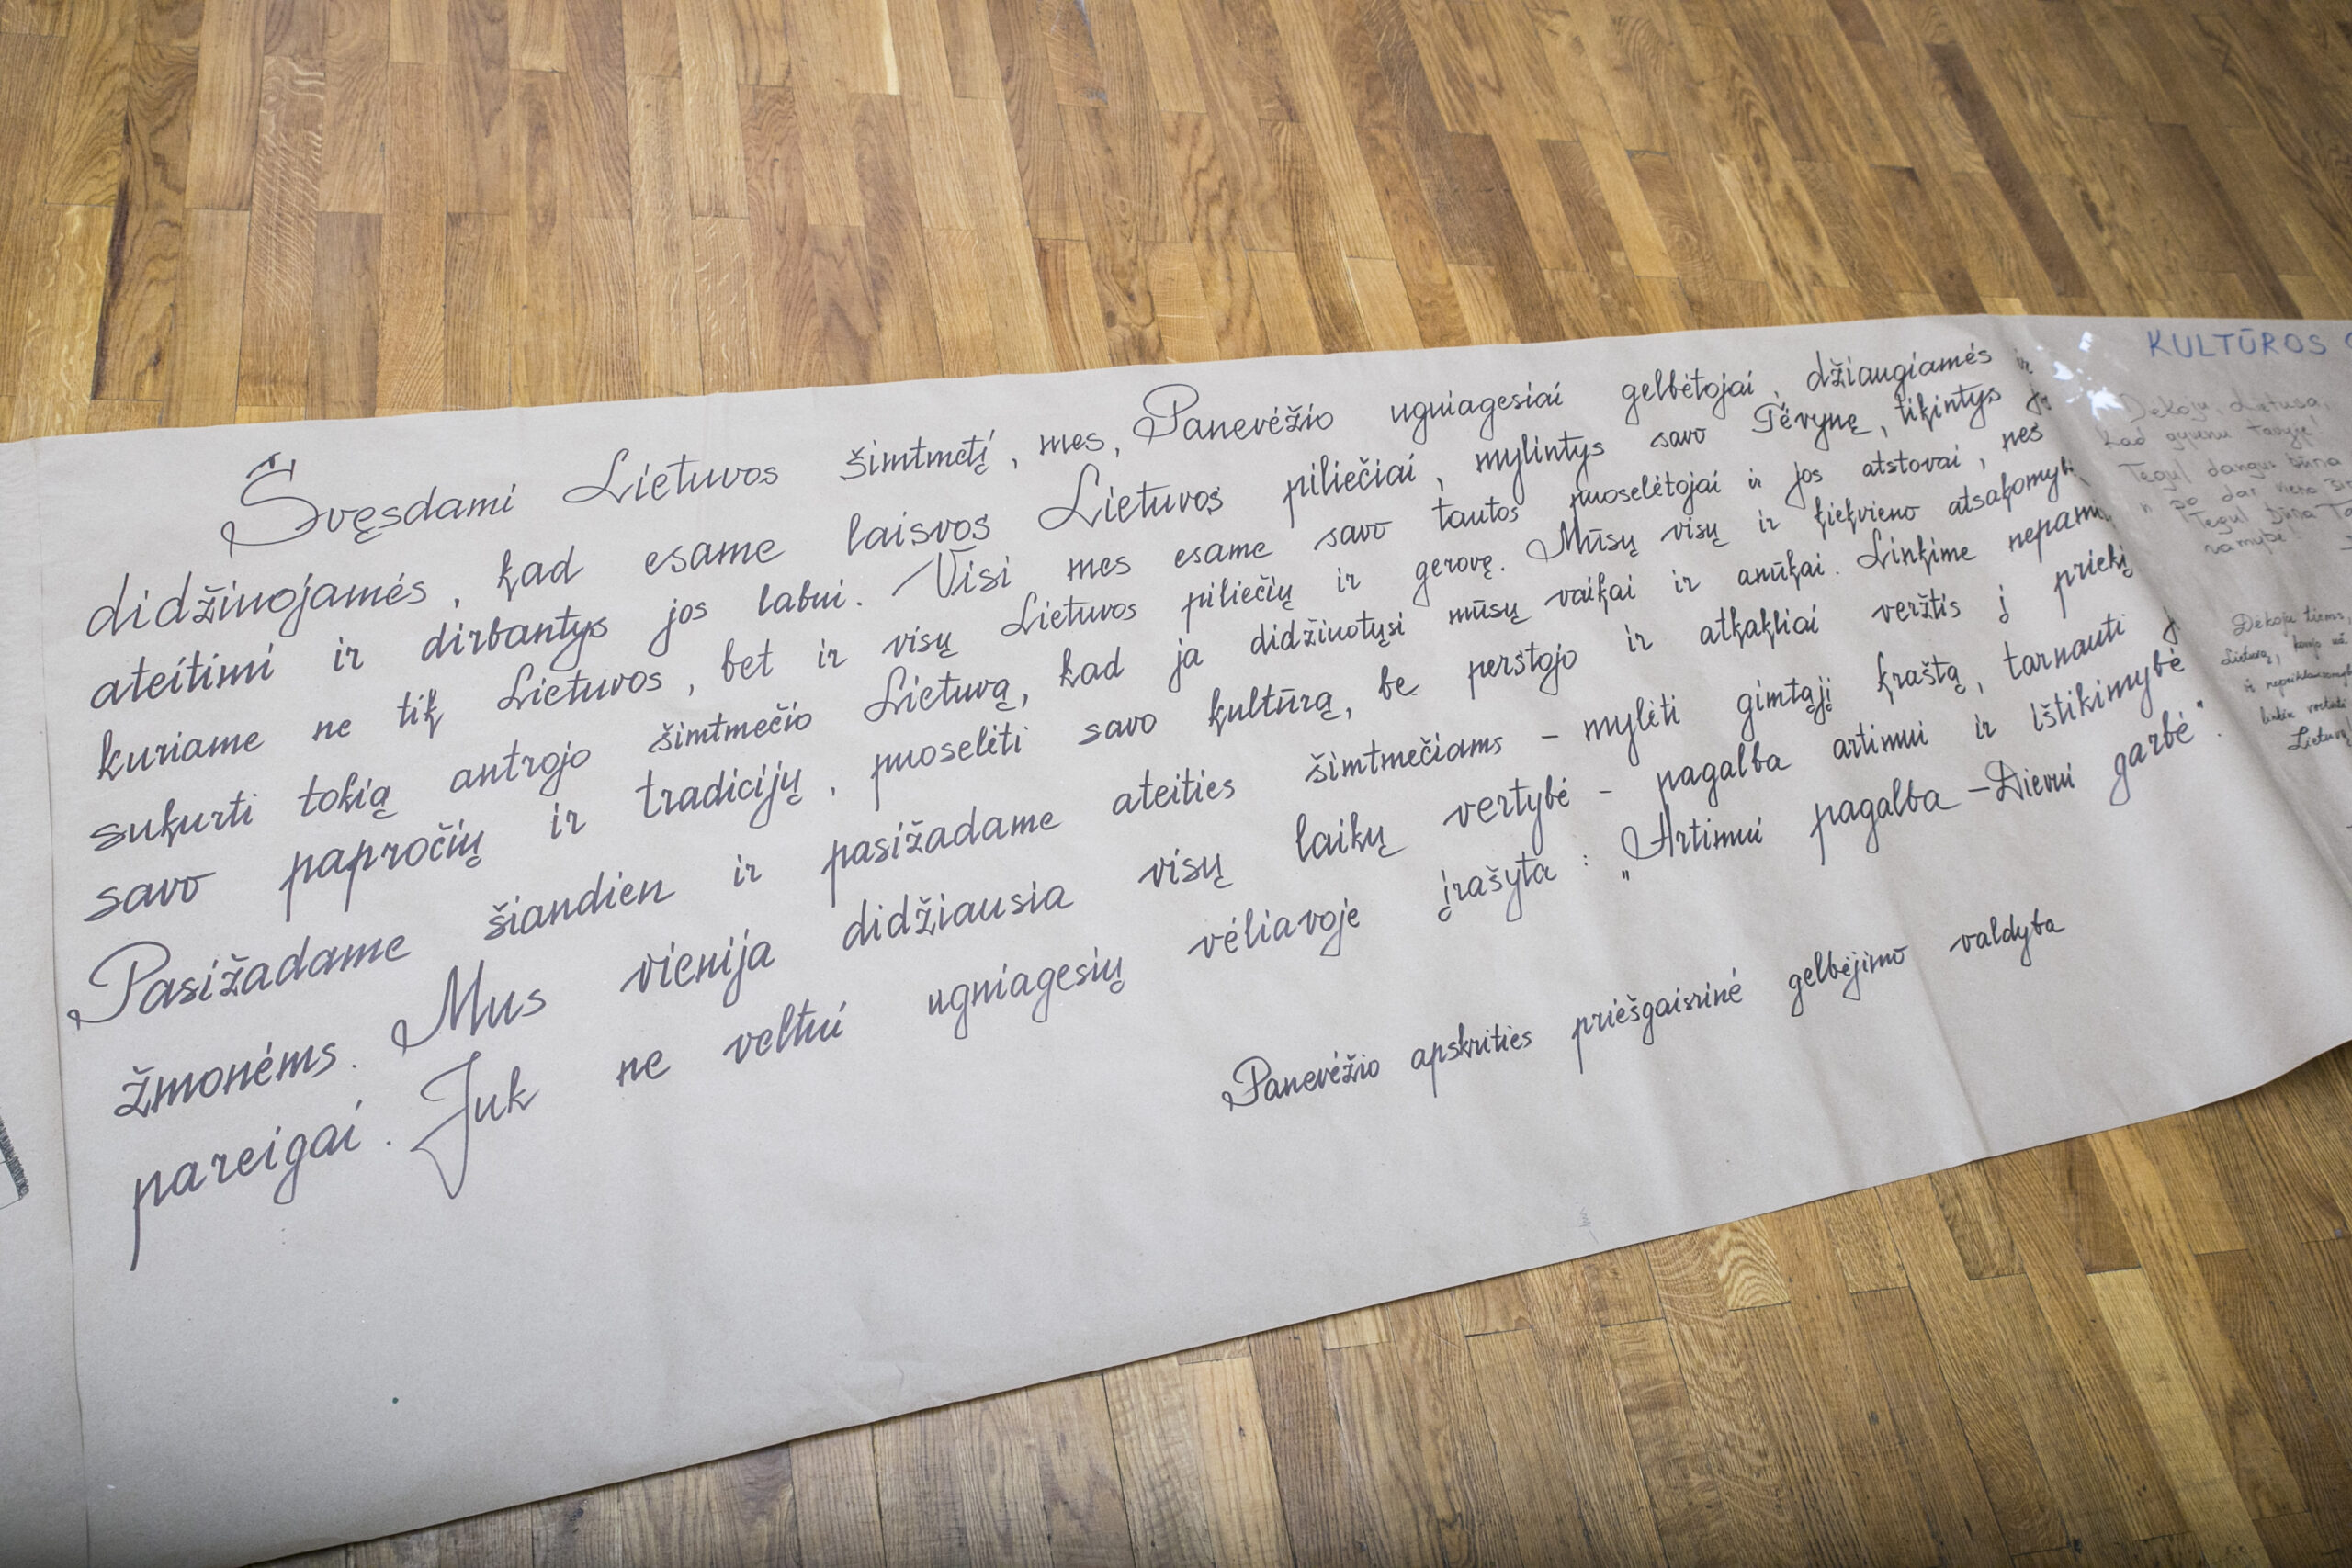 Švęsdami Lietuvos šimtmetį, mes, Panevėžio ugniagesiai gelbėtojai, džiaugiamės ir
didžiuojamės, kad esame laisvos Lietuvos piliečiai, mylintys savo Tėvynę, tikintys jos
ateitimi ir dirbantys jos labui. Visi mes esame savo tautos puoselėtojai ir jos atstovai, nes
kuriame ne tik Lietuvos, bet ir visų Lietuvos piliečių ir gerovę. Mūsų visų ir kiekvieno atsakomybė
sukurti tokią antrojo šimtmečio Lietuvą, kad ja didžiuotųsi mūsų vaikai ir anūkai. Linkime
savo papročių ir tradicijų, puoselėti savo kultūrą, be perstojo ir atkakliai veržtis į priekį
Pasižadame šiandien ir pasižadame ateities šimtmečiams - mylėti gimtąjį kraštą, tarnauti
žmonėms. Mus vienija didžiausia visų laikų vertybė - pagalba artimui ir ištikimybė
pareigai. Juk ne veltui ugniagesių vėliavoje įrašyta: „Artimui pagalba – Dievui garbė".
Panevėžio apskrities priešgaisrinė gelbėjimo valdyba
KULTŪROS
Dėkoju Lietuva,
Kad gyvenu tavyje!
Tegul dangus būna
Tegul būna
Dėkoju tiems,
Lietuvą,